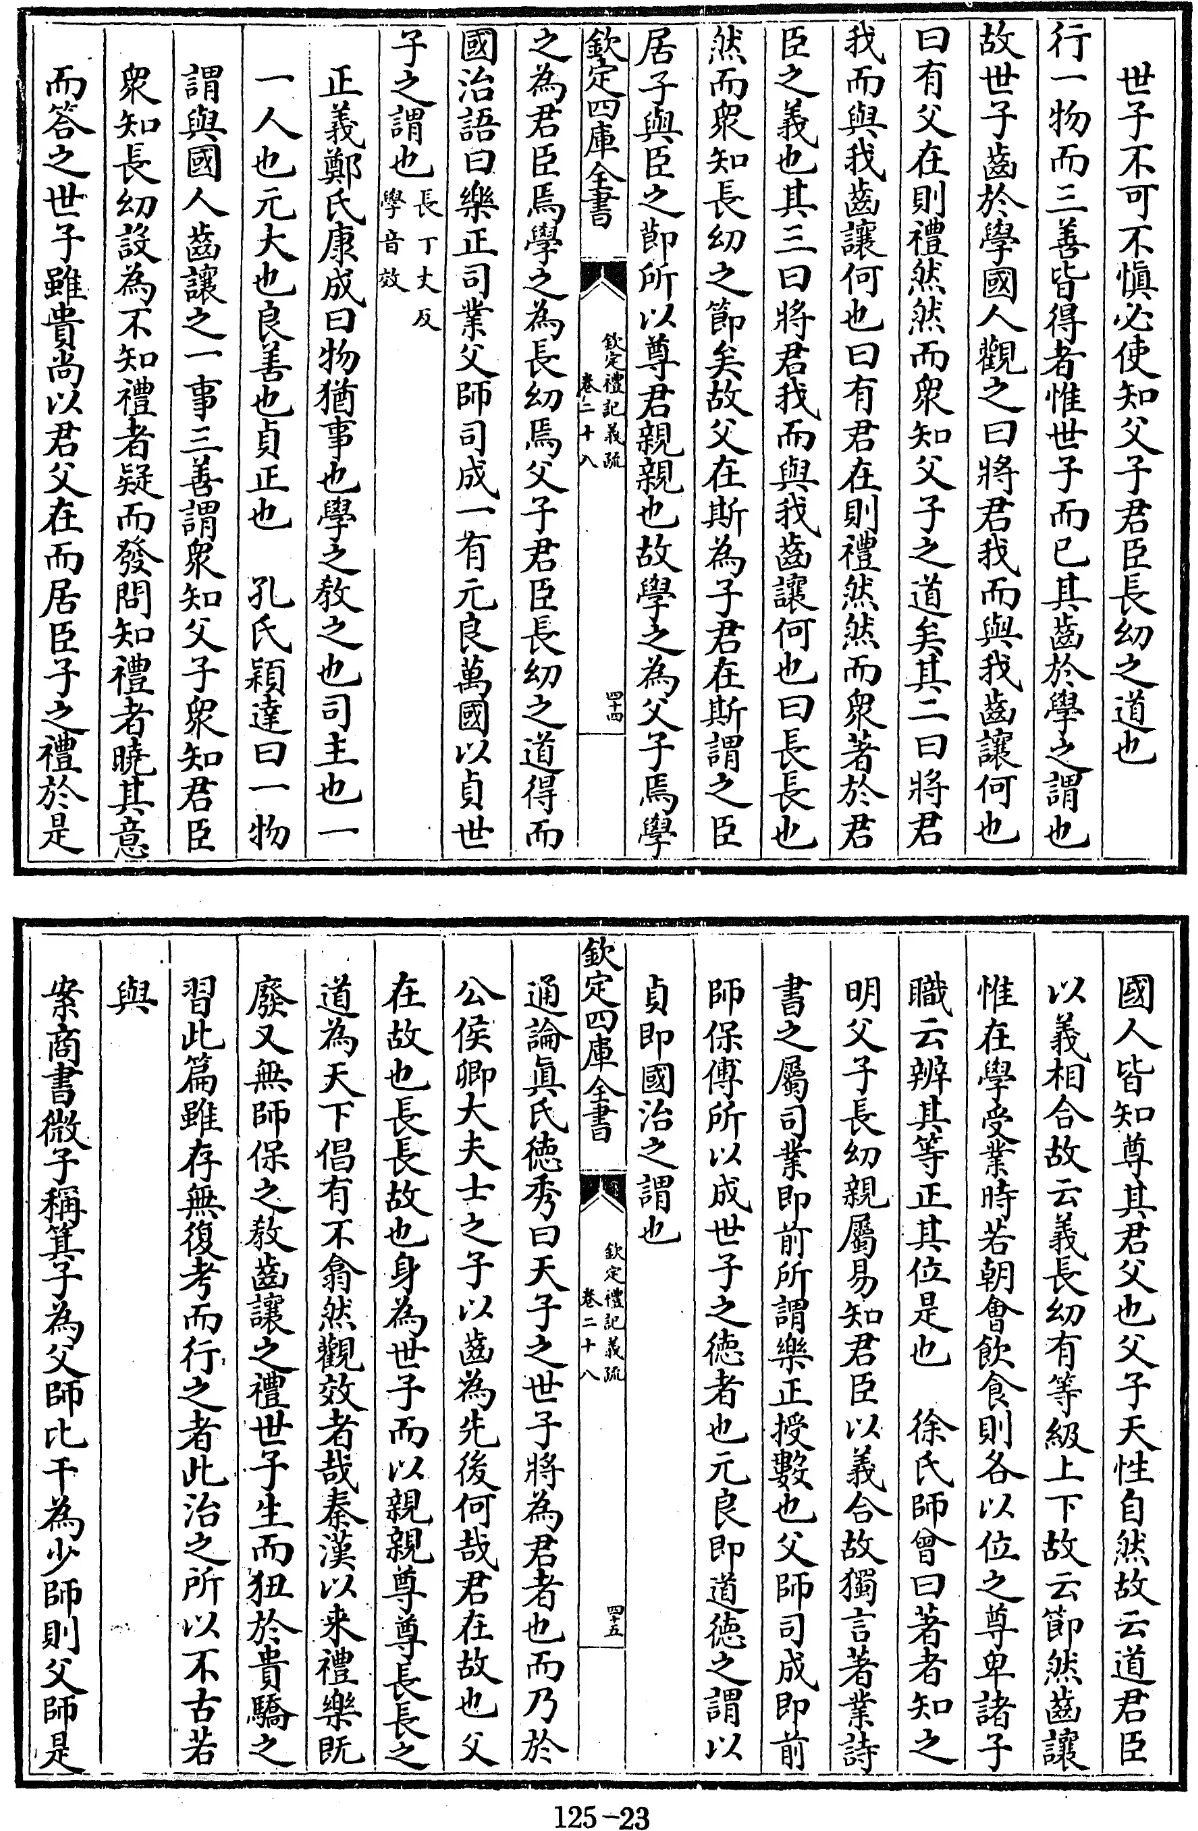 世子不可不慎必使知父子君臣長幼之道也
行一物而三善皆得者惟世子而已其齒於學之謂也
故世子齒於學國人觀之曰將君我而與我齒讓何也
曰有父在則禮然然而衆知父子之道矣其二曰將君
我而與我齒讓何也曰有君在則禮然然而衆著於君
臣之義也其三曰將君我而與我齒讓何也曰長長也
然而衆知長幼之節矣故父在斯為子君在斯謂之臣
居子與臣之節所以尊君親親也故學之為父子焉學
欽定四庫全書
欽定禮記義疏
卷二十八
四十四
之為君臣焉學之為長幼焉父子君臣長幼之道得而
國治語曰樂正司業父師司成一有元良萬國以貞世
子之謂也長丁丈反
學音效
正義鄭氏康成曰物猶事也學之教之也司主也一
一人也元大也良善也貞正也　孔氏穎達曰一物
謂與國人齒讓之一事三善謂衆知父子衆知君臣
衆知長幼設為不知禮者疑而發問知禮者曉其意
而答之世子雖貴尚以君父在而居臣子之禮於是
國人皆知尊其君父也父子天性自然故云道君臣
以義相合故云義長幼有等級上下故云節然齒讓
惟在學受業時若朝會飲食則各以位之尊卑諸子
職云辨其等正其位是也　徐氏師曾曰著者知之
明父子長幼親屬易知君臣以義合故獨言著業詩
書之屬司業即前所謂樂正授數也父師司成即前
師保傅所以成世子之德者也元良即道德之謂以
貞即國治之謂也
欽定四庫全書
欽定禮記義疏
卷二十八
四十五
通論真氏德秀曰天子之世子將為君者也而乃於
公侯卿大夫士之子以齒為先後何哉君在故也父
在故也長長故也身為世子而以親親尊尊長長之
道為天下倡有不翕然觀效者哉秦漢以来禮樂既
廢又無師保之教齒讓之禮世子生而狃於貴驕之
習此篇雖存無復考而行之者此治之所以不古若
與
案商書微子稱箕子為父師比干為少師則父師是
125-23